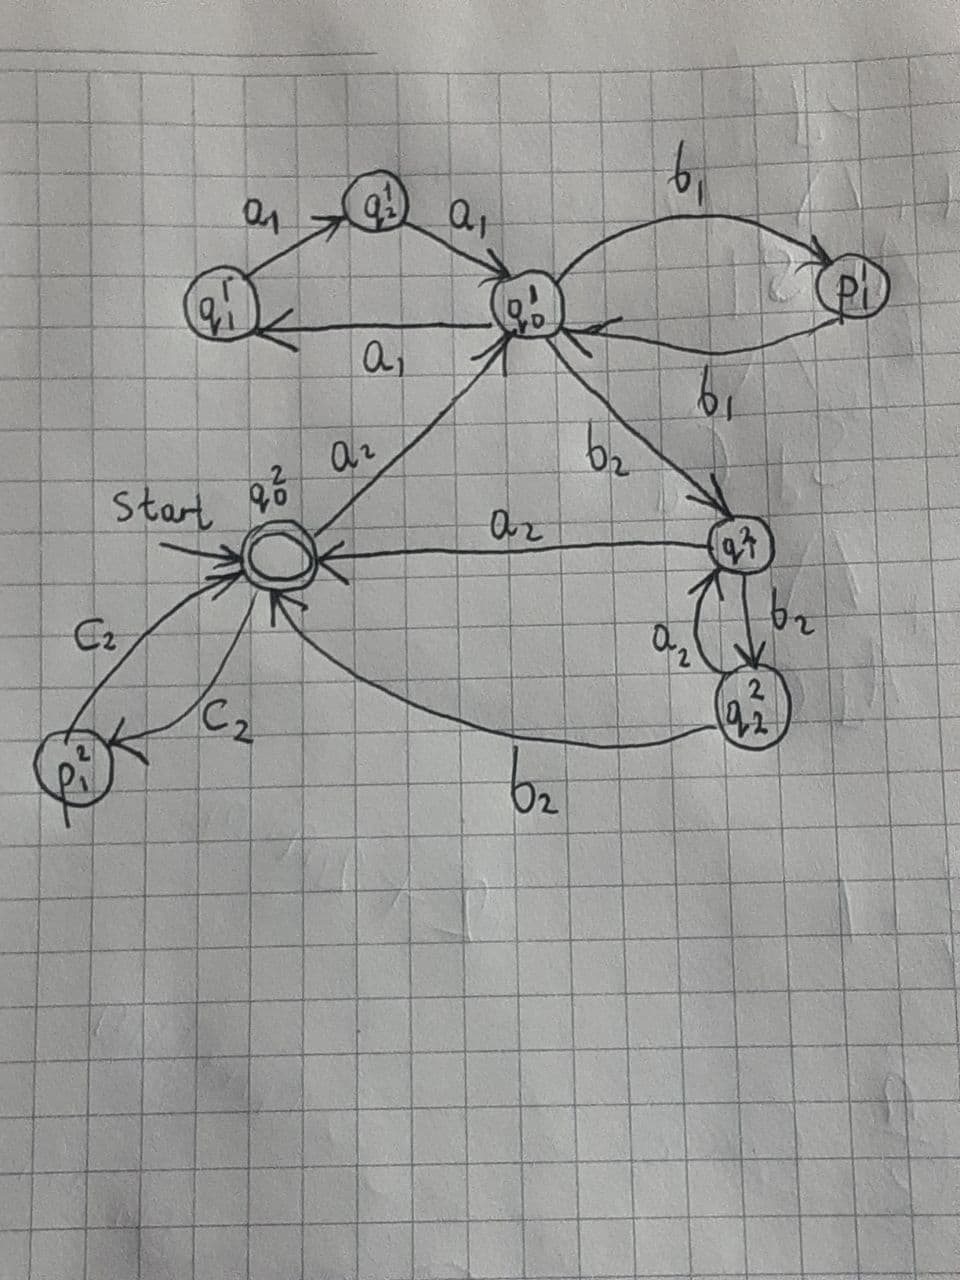 b₁
a₁ q₂¹ a₁
q₁¹ q₀¹ p₁¹
a₁ b₁
a₂ b₂
Start q₀²
a₂
C₂ a₂ b₂
q₂²
C₂
p₁² b₂